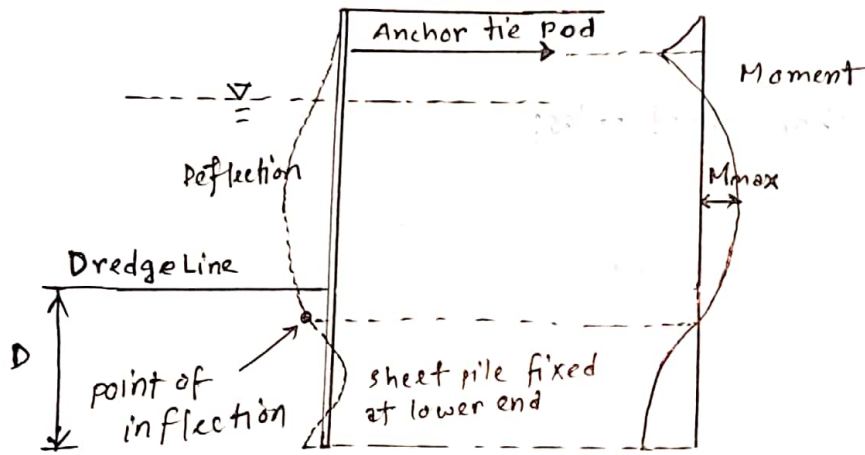 Anchor tie pod
Moment
Deflection
Mmax
Dredge Line
D
point of
inflection
sheet pile fixed
at lower end